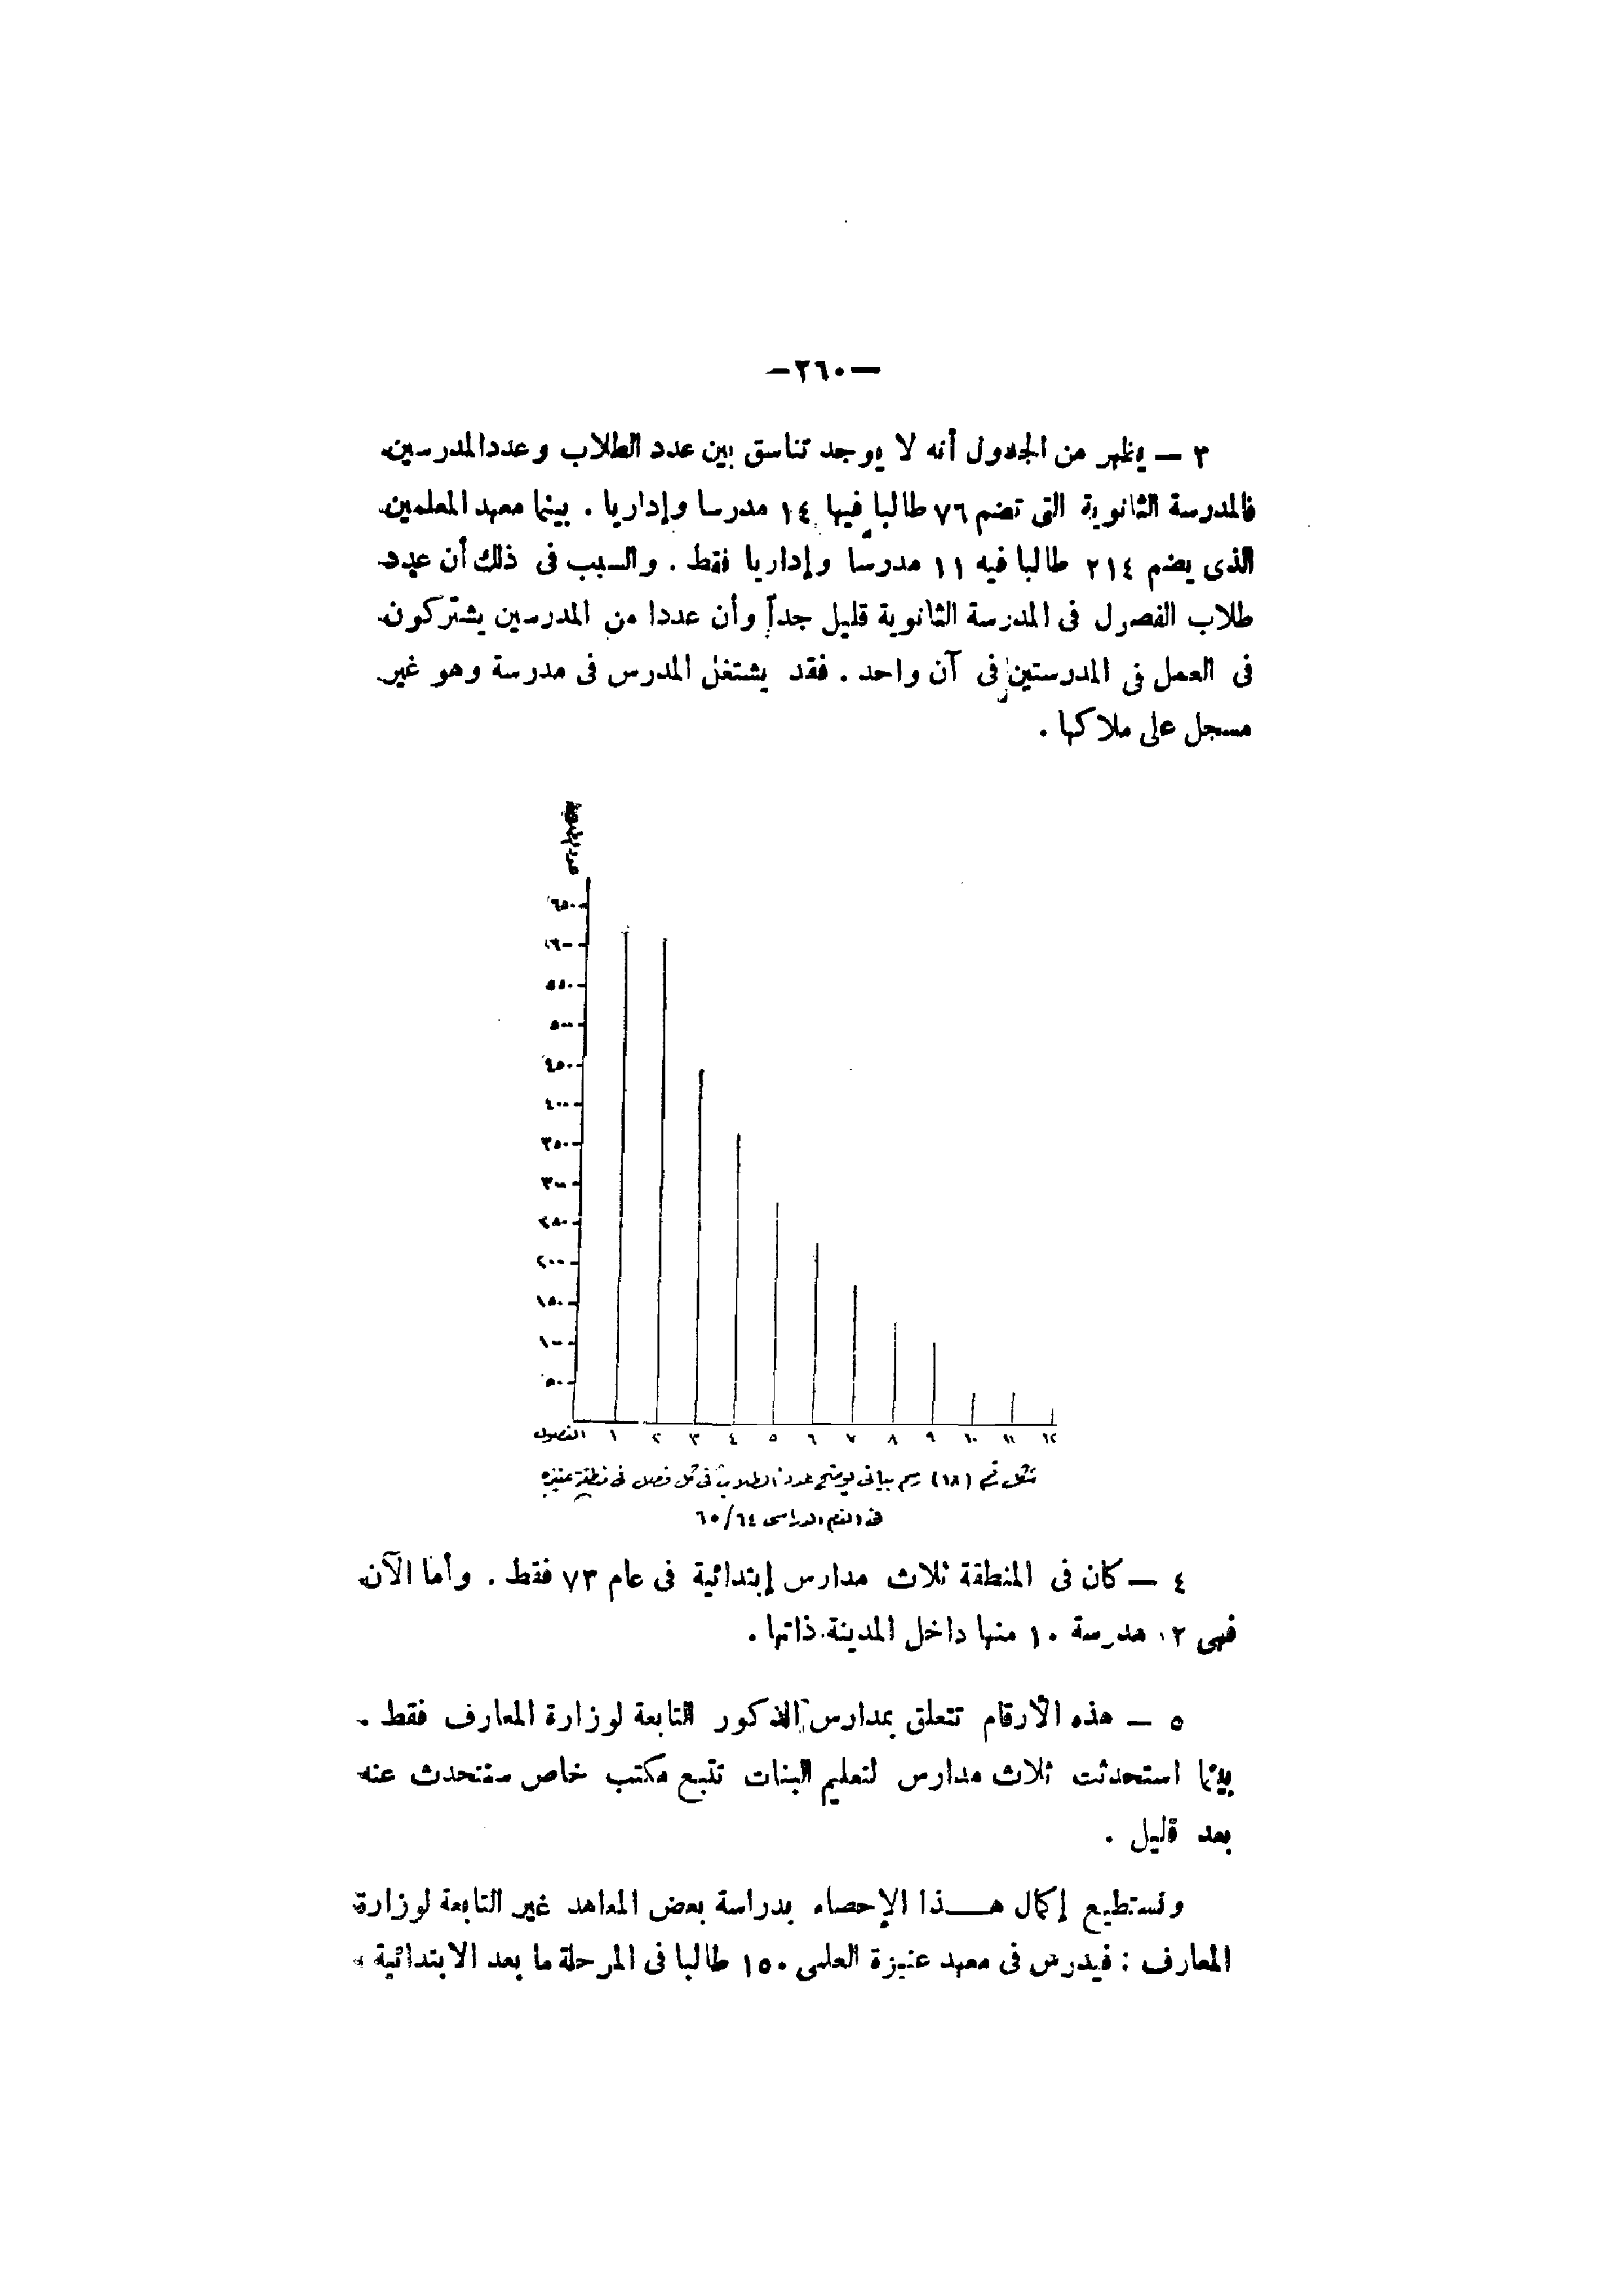 —٢٦٠—
٣ — يظهر من الجدول أنه لا يوجد تناسق بين عدد الطلاب وعدد المدرسين
فالمدرسة الثانوية التى تضم ٧٦ طالبا فيها ١٤ مدرسا وإداريا . بينما معهد المعلمين
الذى يضم ٢١٤ طالبا فيه ١١ مدرسا وإداريا فقط . والسبب فى ذلك أن عدد
طلاب الفصول فى المدرسة الثانوية قليل جداً وأن عددا من المدرسين يشتركون
فى العمل فى المدرستين فى آن واحد . فقد يشتغل المدرس فى مدرسة وهو غير
مسجل على ملاكها .
٦٥٠
٦٠٠
٥٥٠
٥٠٠
٤٥٠
٤٠٠
٣٥٠
٣٠٠
٢٥٠
٢٠٠
١٥٠
١٠٠
٥٠
الفصول ١ ٢ ٣ ٤ ٥ ٦ ٧ ٨ ٩ ١٠ ١١ ١٢
شكل رقم (١٨) رسم بيانى يوضح عدد الطلاب فى كل فصل فى منطقة عنيزة
فى العام الدراسى ٦٥/٦٤
٤ — كان فى المنطقة ثلاث مدارس إبتدائية فى عام ٧٣ فقط . وأما الآن
فهى مدرسة ١٠ منها داخل المدينة ذاتها .
٥ — هذه الأرقام تتعلق بمدارس الذكور التابعة لوزارة المعارف فقط .
بينما استحدثت ثلاث مدارس لتعليم البنات تتبع مكتب خاص سنتحدث عنه
بعد قليل .
ونستطيع إكمال هـــذا الإحصاء بدراسة بعض المعاهد غير التابعة لوزارة
المعارف : فيدرس فى معهد عنيزة العلمى ١٥٠ طالبا فى المرحلة ما بعد الابتدائية ،